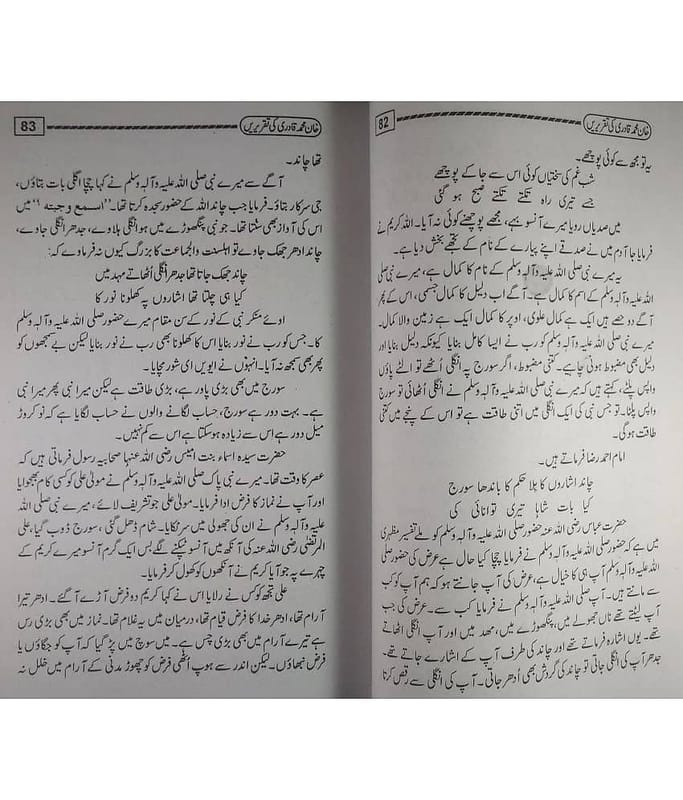 82
خان محمد قادری کی تقریریں
یہ تو مجھ سے کوئی پوچھے۔
شب غم کی سختیاں کوئی اس سے جا کے پوچھے
جسے تیری راہ تکتے تکتے صبح ہو گئی
میں صدیاں رویا میرے آنسو بہے، مجھے پوچھنے کوئی نہ آیا۔ اللہ کریم نے
فرمایا جا آدم میں نے صدقے اپنے پیارے کے نام کے تجھے بخش دیا ہے۔
یہ میرے نبی صلی اللہ علیہ وآلہ وسلم کے نام کا کمال ہے، میرے نبی صلی
اللہ علیہ وآلہ وسلم کے اسم کا کمال ہے۔ آگے اب دلیل کا کمال جسمی، اس کے پھر
آگے دو حصے ہیں ایک ہے کمال علوی، اوپر کا کمال ایک ہے زمین والا کمال۔
اللہ علیہ وآلہ وسلم کو رب نے ایسا کامل بنایا کیونکہ دلیل بنایا اور
دلیل بھی مضبوط ہونی چاہے۔ کتنی مضبوط، اگر سورج پہ انگلی اُٹھے تو الٹے پاؤں
واپس پلٹے، کہتے ہیں کہ میرے نبی صلی اللہ علیہ وآلہ وسلم نے انگلی اُٹھائی تو سورج
واپس پلٹا۔ تو جس نبی کی ایک انگلی میں اتنی طاقت ہے تو اس کے پنجے میں کتنی
طاقت ہو گی۔
امام احمد رضا فرماتے ہیں۔
چاند اشاروں کا ہلا حکم کا باندھا سورج
کیا بات شاہا تیری توانائی کی
حضرت عباس رضی اللہ عنہ حضور صلی اللہ علیہ وآلہ وسلم کو ملے تفسیر مظہری
میں ہے کہ حضور صلی اللہ علیہ وآلہ وسلم نے فرمایا چچا کیا حال ہے عرض کی حضور صلی
اللہ علیہ وآلہ وسلم آپ ہی کا خیال ہے، عرض کی آپ جانتے ہو کہ ہم آپ کو کب
سے مانتے ہیں۔ آپ صلی اللہ علیہ وآلہ وسلم نے فرمایا کب سے۔ عرض کی جب
آپ لیٹتے تھے ناں جھولے میں، پنگھوڑے میں، مہد میں اور آپ انگلی اٹھاتے
تھے۔ یوں اشارہ فرماتے تھے اور چاند کی طرف آپ کے اشارے جاتے تھے۔
جدھر آپ کی انگلی جاتی تو چاند کی گردش بھی اُدھر جاتی۔ آپ کی انگلی سے رقص کرتا
83
خان محمد قادری کی تقریریں
تھا چاند۔
آگے سے میرے نبی صلی اللہ علیہ وآلہ وسلم نے کہا چچا اگلی بات بتاؤں،
جی سرکار بتاؤ۔ فرمایا جب چاند اللہ کے حضور سجدہ کرتا تھا۔ "اسمع وجبتہ" میں
اس کی آواز بھی سنتا تھا۔ جو نبی پنگھوڑے میں ہو انگلی ہلاوے، جدھر انگلی جاوے،
چاند ادھر جھک جاوے تو اہلسنت والجماعت کا بزرگ کیوں نہ فرماوے کہ:
چاند جھک جاتا تھا جدھر انگلی اُٹھاتے مہد میں
کیا ہی چلتا تھا اشاروں پہ کھلونا نور کا
اوئے منکر نبی کے نور کے سن مقام میرے حضور صلی اللہ علیہ وآلہ وسلم
کا۔ جس کو رب نے نور بنایا اس کا کھلونا بھی رب نے نور بنایا لیکن بے سمجھوں کو
پھر بھی سمجھ نہ آیا۔ انہوں نے ایویں ای شور مچایا۔
سورج میں بھی بڑی پاور ہے، بڑی طاقت ہے لیکن میرا نبی پھر میرا نبی
ہے۔ بہت دور ہے سورج، حساب لگانے والوں نے حساب لگایا ہے کہ نو کروڑ
میل دور ہے اس سے زیادہ ہو سکتا ہے اس سے کم نہیں۔
حضرت سیدہ اسماء بنت امیس رضی اللہ عنہا صحابیہ رسول فرماتی ہیں کہ
عصر کا وقت تھا۔ میرے نبی پاک صلی اللہ علیہ وآلہ وسلم نے مولیٰ علی کو کسی کام بھجوایا
اور آپ نے نماز کا فرض ادا فرمایا۔ مولیٰ علی جو تشریف لائے، میرے نبی صلی اللہ
علیہ وآلہ وسلم نے ان کی جھولی میں سر ٹکایا۔ شام ڈھل گئی، سورج ڈوب گیا، علی
المرتضیٰ رضی اللہ عنہ کی آنکھ میں آنسو ٹپکنے لگے بس ایک گرم آنسو میرے کریم کے
چہرے پہ جو آیا کریم نے آنکھوں کو کھول کر فرمایا۔
علی تجھ کو کس نے رلایا اس نے کہا کریم دو فرض آڑے آ گئے۔ ادھر تیرا
آرام تھا، ادھر خدا کا فرض قیام تھا، درمیان میں یہ غلام تھا۔ نماز میں بھی بڑی رس
ہے تیرے آرام میں بھی بڑی چس ہے۔ میں سوچ میں پڑ گیا کہ آپ کو جگاؤں یا
فرض نبھاؤں۔ لیکن اندر سے ہوپ اُٹھی فرض کو چھوڑ مدنی کے آرام میں خلل نہ